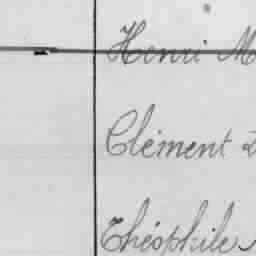 Henri M
Clément D
Théophile